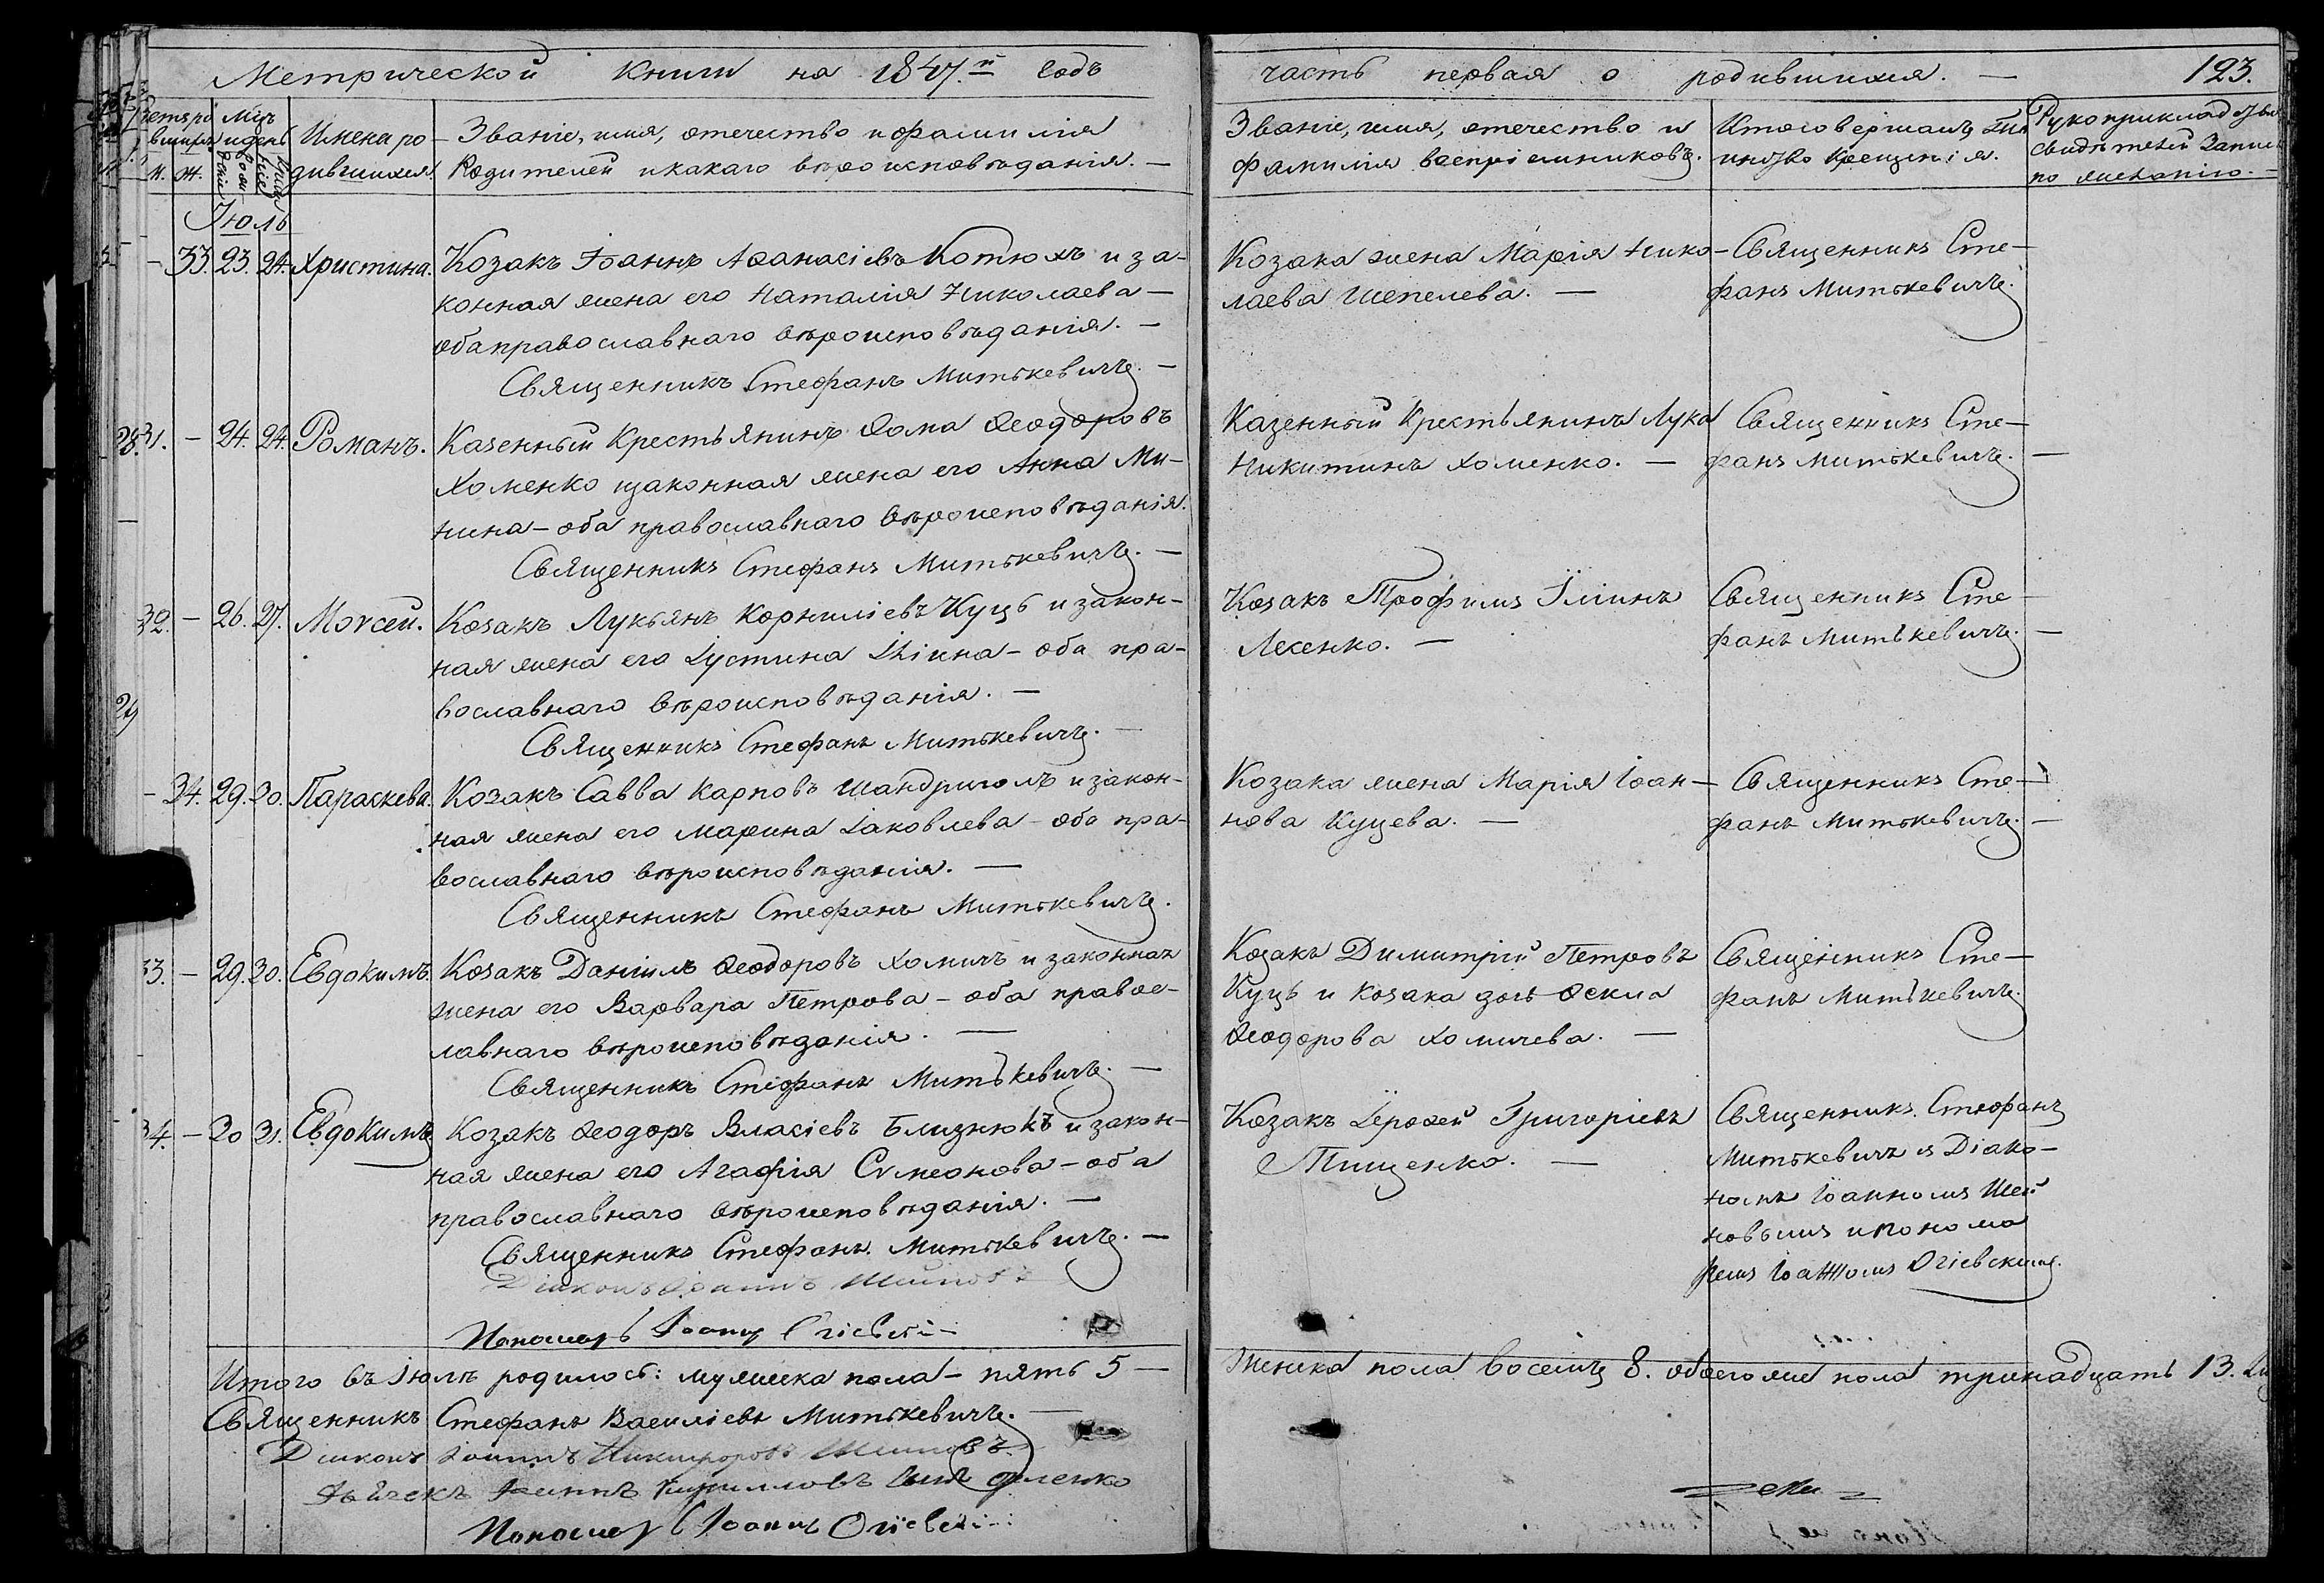 Метрической книги на 1847.й годъ
часть первая о родившихся. — 123.
Имена ро-
дившихся.
Званіе, имя, отечество и фамилія
Родителей и какаго вѣроисповѣданія. —
Званіе, имя, отечество и
фамилія воспріемниковъ.
Кто совершалъ Таи
инство Крещенія.
Рукоприкладство
свидѣтелей Записи
по желанію. —
М. Ж.
Іюль
— 33. 23. 24. Христина. Козакъ Іоаннъ Аѳанасіевъ Котюхъ и за-
конная жена его Наталія Николаева —
оба православнаго вѣроисповѣданія. —
Священникъ Стефанъ Митькевичъ. —
Козака жена Марія Нико-
лаева Шепелева. —
Священникъ Сте-
фанъ Митькевичъ.
31. — 24. 24. Романъ. Казенный Крестьянинъ Ѳома Ѳеодоровъ
Хоменко и законная жена его Анна Ми-
нина — оба православнаго вѣроисповѣданія.
Священникъ Стефанъ Митькевичъ. —
Казенный Крестьянинъ Лука
Никитинъ Хоменко. —
Священникъ Сте-
фанъ Митькевичъ. —
32. — 26. 27. Моѵсей. Козакъ Лукьянъ Корниліевъ Куцъ и закон-
ная жена его Іустина Іліина — оба пра-
вославнаго вѣроисповѣданія. —
Священникъ Стефанъ Митькевичъ. —
Козакъ Трофимъ Іліинъ
Лесенко. —
Священникъ Сте-
фанъ Митькевичъ. —
— 34. 29. 30. Параскева. Козакъ Савва Карповъ Шандриголъ и закон-
ная жена его Марина Іаковлева — оба пра-
вославнаго вѣроисповѣданія. —
Священникъ Стефанъ Митькевичъ.
Козака жена Марія Іоан-
нова Куцева. —
Священникъ Сте-
фанъ Митькевичъ. —
33. — 29. 30. Евдокимъ. Козакъ Даніилъ Ѳеодоровъ Хомичъ и законная
жена его Варвара Петрова — оба правос-
лавнаго вѣроисповѣданія. —
Священникъ Стефанъ Митькевичъ. —
Козакъ Димитрій Петровъ
Куцъ и козака дочь Ѳекла
Ѳеодорова Хомичева. —
Священникъ Сте-
фанъ Митькевичъ.
34. — 30 31. Евдокимъ Козакъ Ѳеодоръ Власіевъ Близнюкъ и закон-
ная жена его Агафія Сѵмеонова — оба
православнаго вѣроисповѣданія. —
Священникъ Стефанъ Митькевичъ. —
Діаконъ Іоаннъ Шейновъ
Пономарь Іоаннъ Огіевскій
Козакъ Іероѳей Григоріевъ
Пищенко. —
Священникъ Стефанъ
Митькевичъ съ Діако-
номъ Іоанномъ Шей
новымъ и понома
ремъ Іоанномъ Огіевскимъ.
Итого въ Іюлѣ родилось: мужеска пола — пять 5 —
Женска пола восемь 8. обоего же пола тринадцать 13.
Священникъ Стефанъ Василіевъ Митькевичъ. —
Діаконъ Іоаннъ Никифоровъ Шейновъ
Дьячекъ Іоаннъ Кирилловъ
Пономарь Іоаннъ Огіевскій